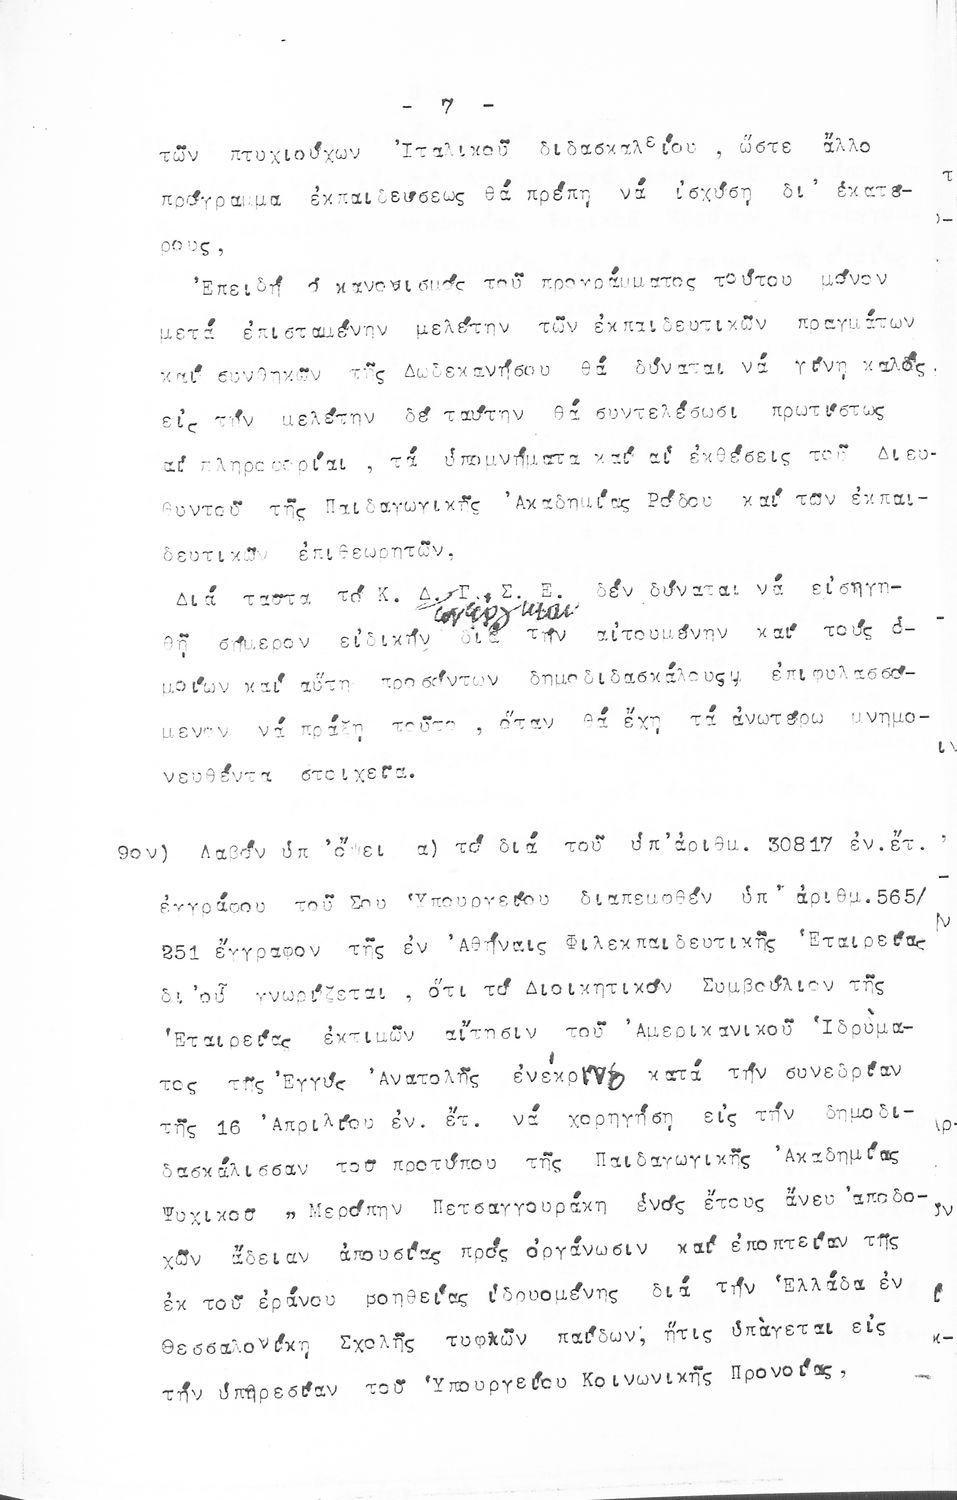 - 7 -
τῶν πτυχιούχων Ἰταλικοῦ διδασκαλείου , ὥστε ἄλλο
πρόγραμμα ἐκπαιδεύσεως θά πρέπη νά ἰσχύση δι' ἑκατέ-
ρους,
Ἐπειδή ὁ κανονισμός τοῦ προγράμματος τούτου μόνον
μετά ἐπισταμένην μελέτην τῶν ἐκπαιδευτικῶν πραγμάτων
καί συνθηκῶν τῆς Δωδεκανήσου θά δύναται νά γίνη καλός.
εἰς τήν μελέτην δέ ταύτην θά συντελέσωσι πρωτίστως
αἱ πληροφορίαι , τά ὑπομνήματα καί αἱ ἐκθέσεις τοῦ Διευ-
θυντοῦ τῆς Παιδαγωγικῆς Ἀκαδημίας Ρόδου καί τῶν ἐκπαι-
δευτικῶν ἐπιθεωρητῶν,
Διά ταῦτα τό Κ. Δ. Γ. Σ. Ε. δέν δύναται νά εἰσηγη-
θῇ σήμερον εἰδικήν διά τήν αἰτουμένην καί τούς ὁ-
μοίων καί αὕτη προσόντων δημοδιδασκάλουςψ ἐπιφυλασσό-
μενον νά πράξη τοῦτο , ὅταν θά ἔχη τά ἀνωτέρω μνημο-
νευθέντα στοιχεῖα.
9ον) Λαβόν ὑπ 'ὄψει α) τό διά τοῦ ὑπ'ἀριθμ. 30817 ἐν.ἔτ.
ἐγγράφου τοῦ Σου Ὑπουργείου διαπεμφθέν ὑπ' ἀριθμ.565/
251 ἔγγραφον τῆς ἐν Ἀθήναις Φιλεκπαιδευτικῆς Ἑταιρείας
δι'οὗ γνωρίζεται , ὅτι τό Διοικητικόν Συμβούλιον τῆς
Ἑταιρείας ἐκτιμῶν αἴτησιν τοῦ Ἀμερικανικοῦ Ἱδρύμα-
τος τῆς Ἐγγύς Ἀνατολῆς ἐνέκρινε κατά τήν συνεδρίαν
τῆς 16 Ἀπριλίου ἐν. ἔτ. νά χορηγήση εἰς τήν δημοδι-
δασκάλισσαν τοῦ προτύπου τῆς Παιδαγωγικῆς Ἀκαδημίας
Ψυχικοῦ „ Μερόπην Πετσαγγουράκη ἑνός ἔτους ἄνευ ἀποδο-
χῶν ἄδειαν ἀπουσίας πρός ὀργάνωσιν καί ἐποπτείαν τῆς
ἐκ τοῦ ἐράνου βοηθείας ἱδρυομένης διά τήν Ἑλλάδα ἐν
Θεσσαλονίκη Σχολῆς τυφλῶν παίδων, ἥτις ὑπάγεται εἰς
τήν ὑπηρεσίαν τοῦ Ὑπουργείου Κοινωνικῆς Προνοίας,